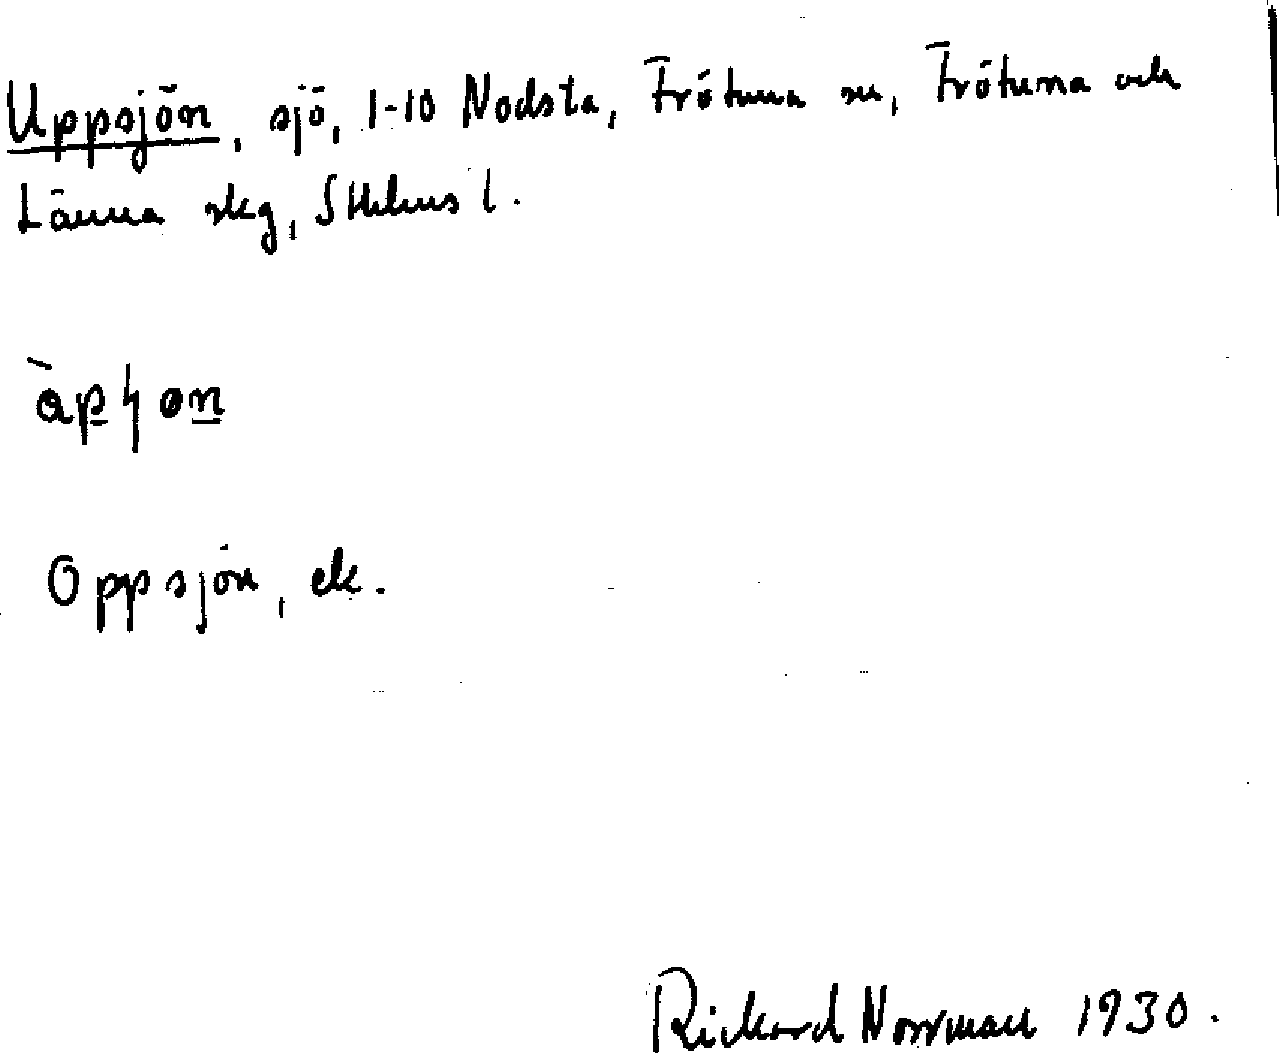 Uppsjön, sjö, 1-10 Nodsta, Frötuna sn, Frötuna och
Länna skg, Sthlms l.
àpɧøn
Oppsjön, ek.
Rickard Norrman 1930.